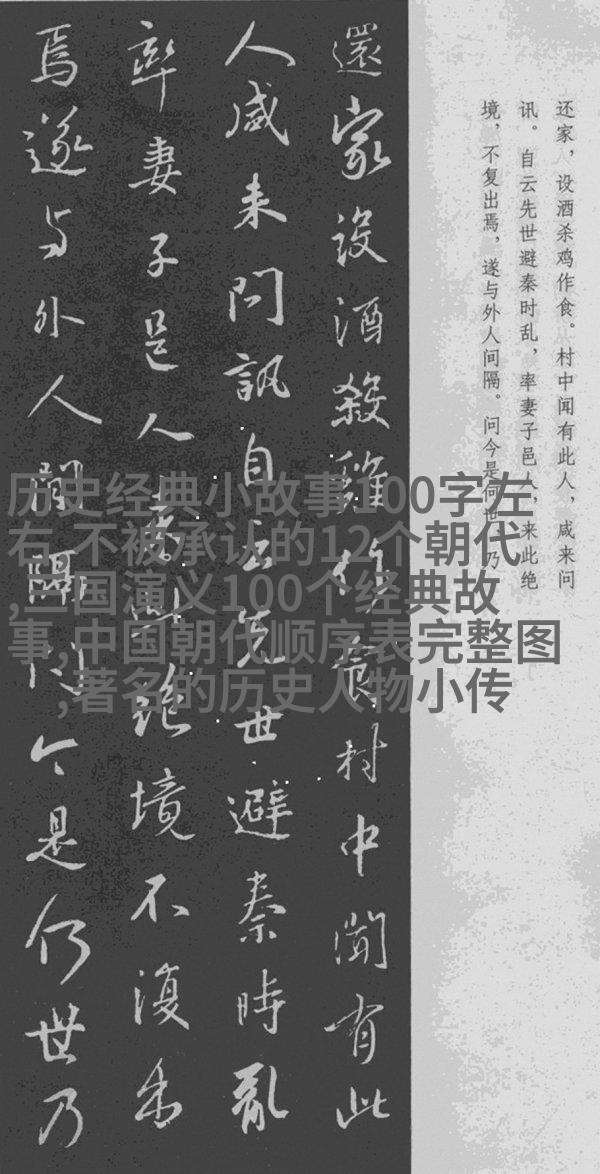 还家，设酒杀鸡作食。村中闻有此人，咸来问
讯。自云先世避秦时乱，率妻子邑人，来此绝
境，不复出焉，遂与外人间隔。问今是何世，乃
還家設酒殺雞作食村中聞有此
人咸来問訊自云先世避秦時亂
率妻子邑人来此絶境不復出
焉遂与外人間隔問今是何世乃
历史经典小故事100字左
右,不被承认的12个朝代
,三国演义100个经典故
事,中国朝代顺序表完整图
,著名的历史人物小传